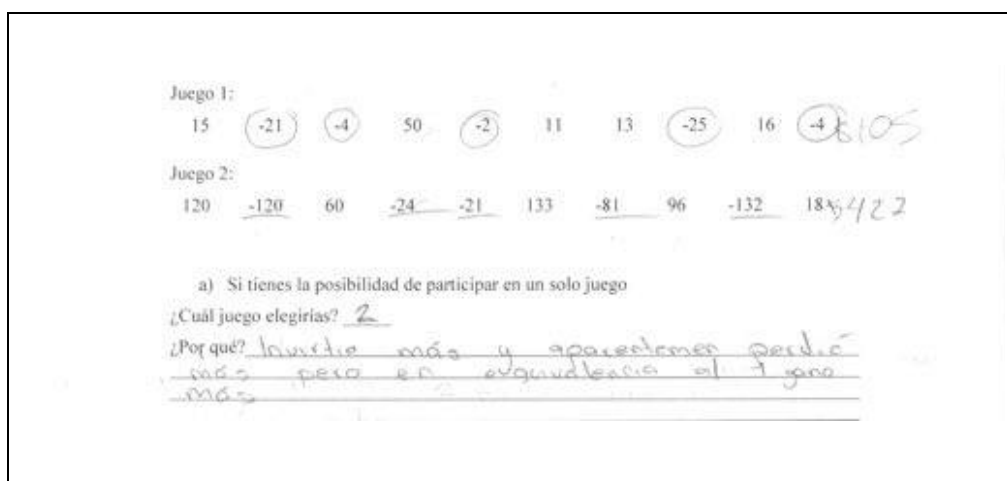 Juego 1:
15 -21 -4 50 -2 11 13 -25 16 -4 105
Juego 2:
120 -120 60 -24 -21 133 -81 96 -132 18 422
a) Si tienes la posibilidad de participar en un solo juego
¿Cuál juego elegirías? 2
¿Por qué? Invirtio más y aparentemen perdió
más pero en equivalencia al 1 gano
más